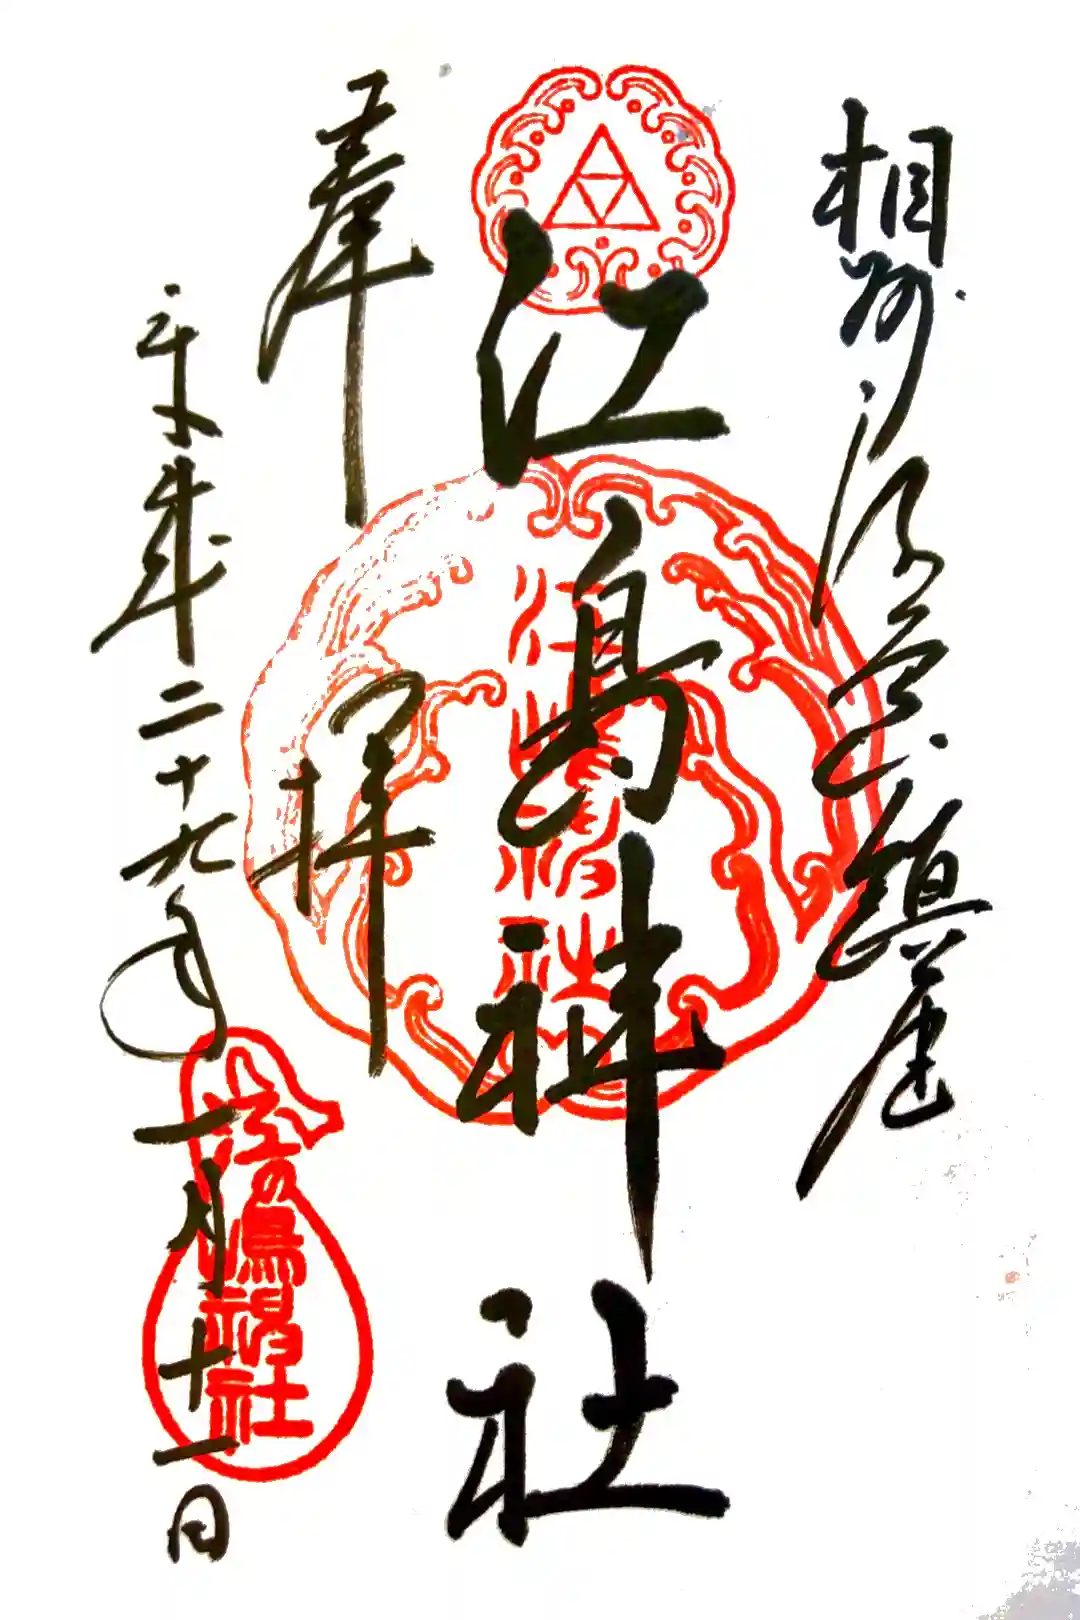 相州
鎮座
江島神社
奉拝
平成二十九年一月十一日
江嶋神社
江の嶋神社